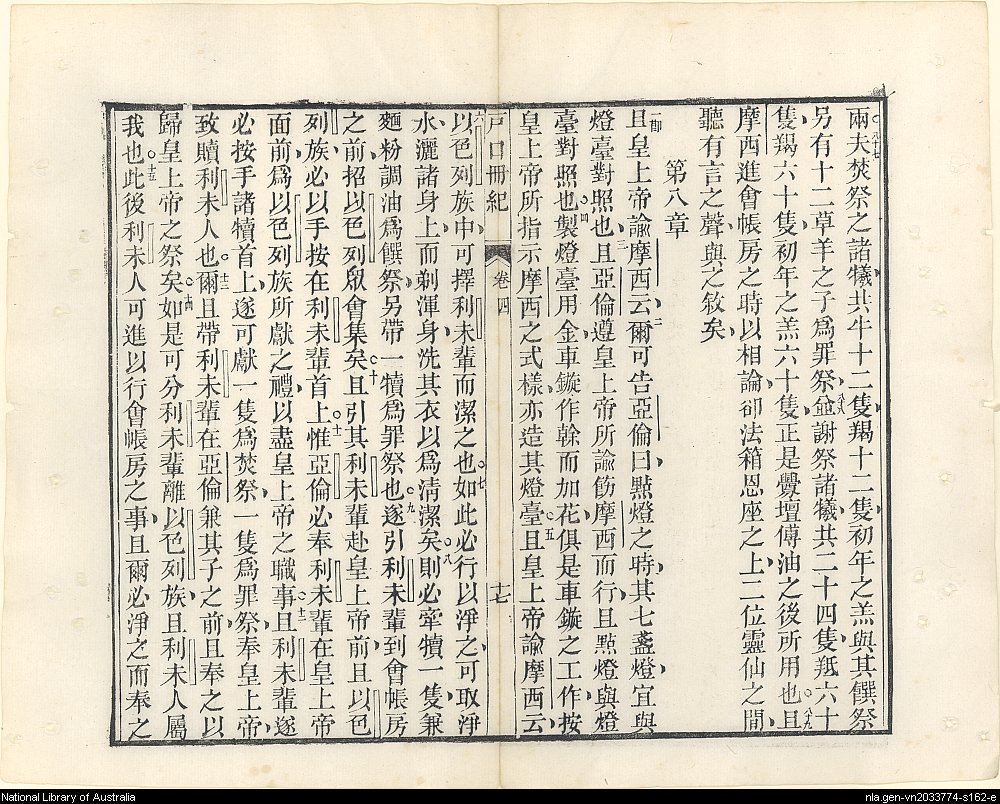 ○八十七
兩夫焚祭之諸犧共牛十二隻羯十二隻初年之羔與其饌祭
另有十二草羊之子爲罪祭八十八並謝祭諸犧共二十四隻羝六十
隻羯六十隻初年之羔六十隻正是釁壇傅油之後所用也○八十九且
摩西進會帳房之時以相論卻法箱恩座之上二位靈仙之間
聽有言之聲與之敘矣
第八章
一節
且皇上帝諭摩西云二爾可告亞倫曰點燈之時其七盞燈宜與
燈臺對照也三且亞倫遵皇上帝所諭飭摩西而行且點燈與燈
臺對照也○四製燈臺用金車鏇作榦而加花俱是車鏇之工作按
皇上帝所指示摩西之式樣亦造其燈臺○五且皇上帝諭摩西云
戶口冊紀 卷四 十七
六
以色列族中可擇利未輩而潔之也○七如此必行以淨之可取淨
水灑諸身上而剃渾身洗其衣以爲清潔矣○八則必牽犢一隻兼
麵粉調油爲饌祭另帶一犢爲罪祭也○九遂引利未輩到會帳房
之前招以色列眾會集矣○十且引其利未輩赴皇上帝前且以色
列族必以手按在利未輩首上○十一惟亞倫必奉利未輩在皇上帝
面前爲以色列族所獻之禮以盡皇上帝之職事○十二且利未輩遂
必按手諸犢首上遂可獻一隻爲焚祭一隻爲罪祭奉皇上帝
致贖利未人也○十三爾且帶利未輩在亞倫兼其子之前且奉之以
歸皇上帝之祭矣○十四如是可分利未輩離以色列族且利未人屬
我也○十五此後利未人可進以行會帳房之事且爾必淨之而奉之
National Library of Australia
nla.gen-vn2033774-s162-e